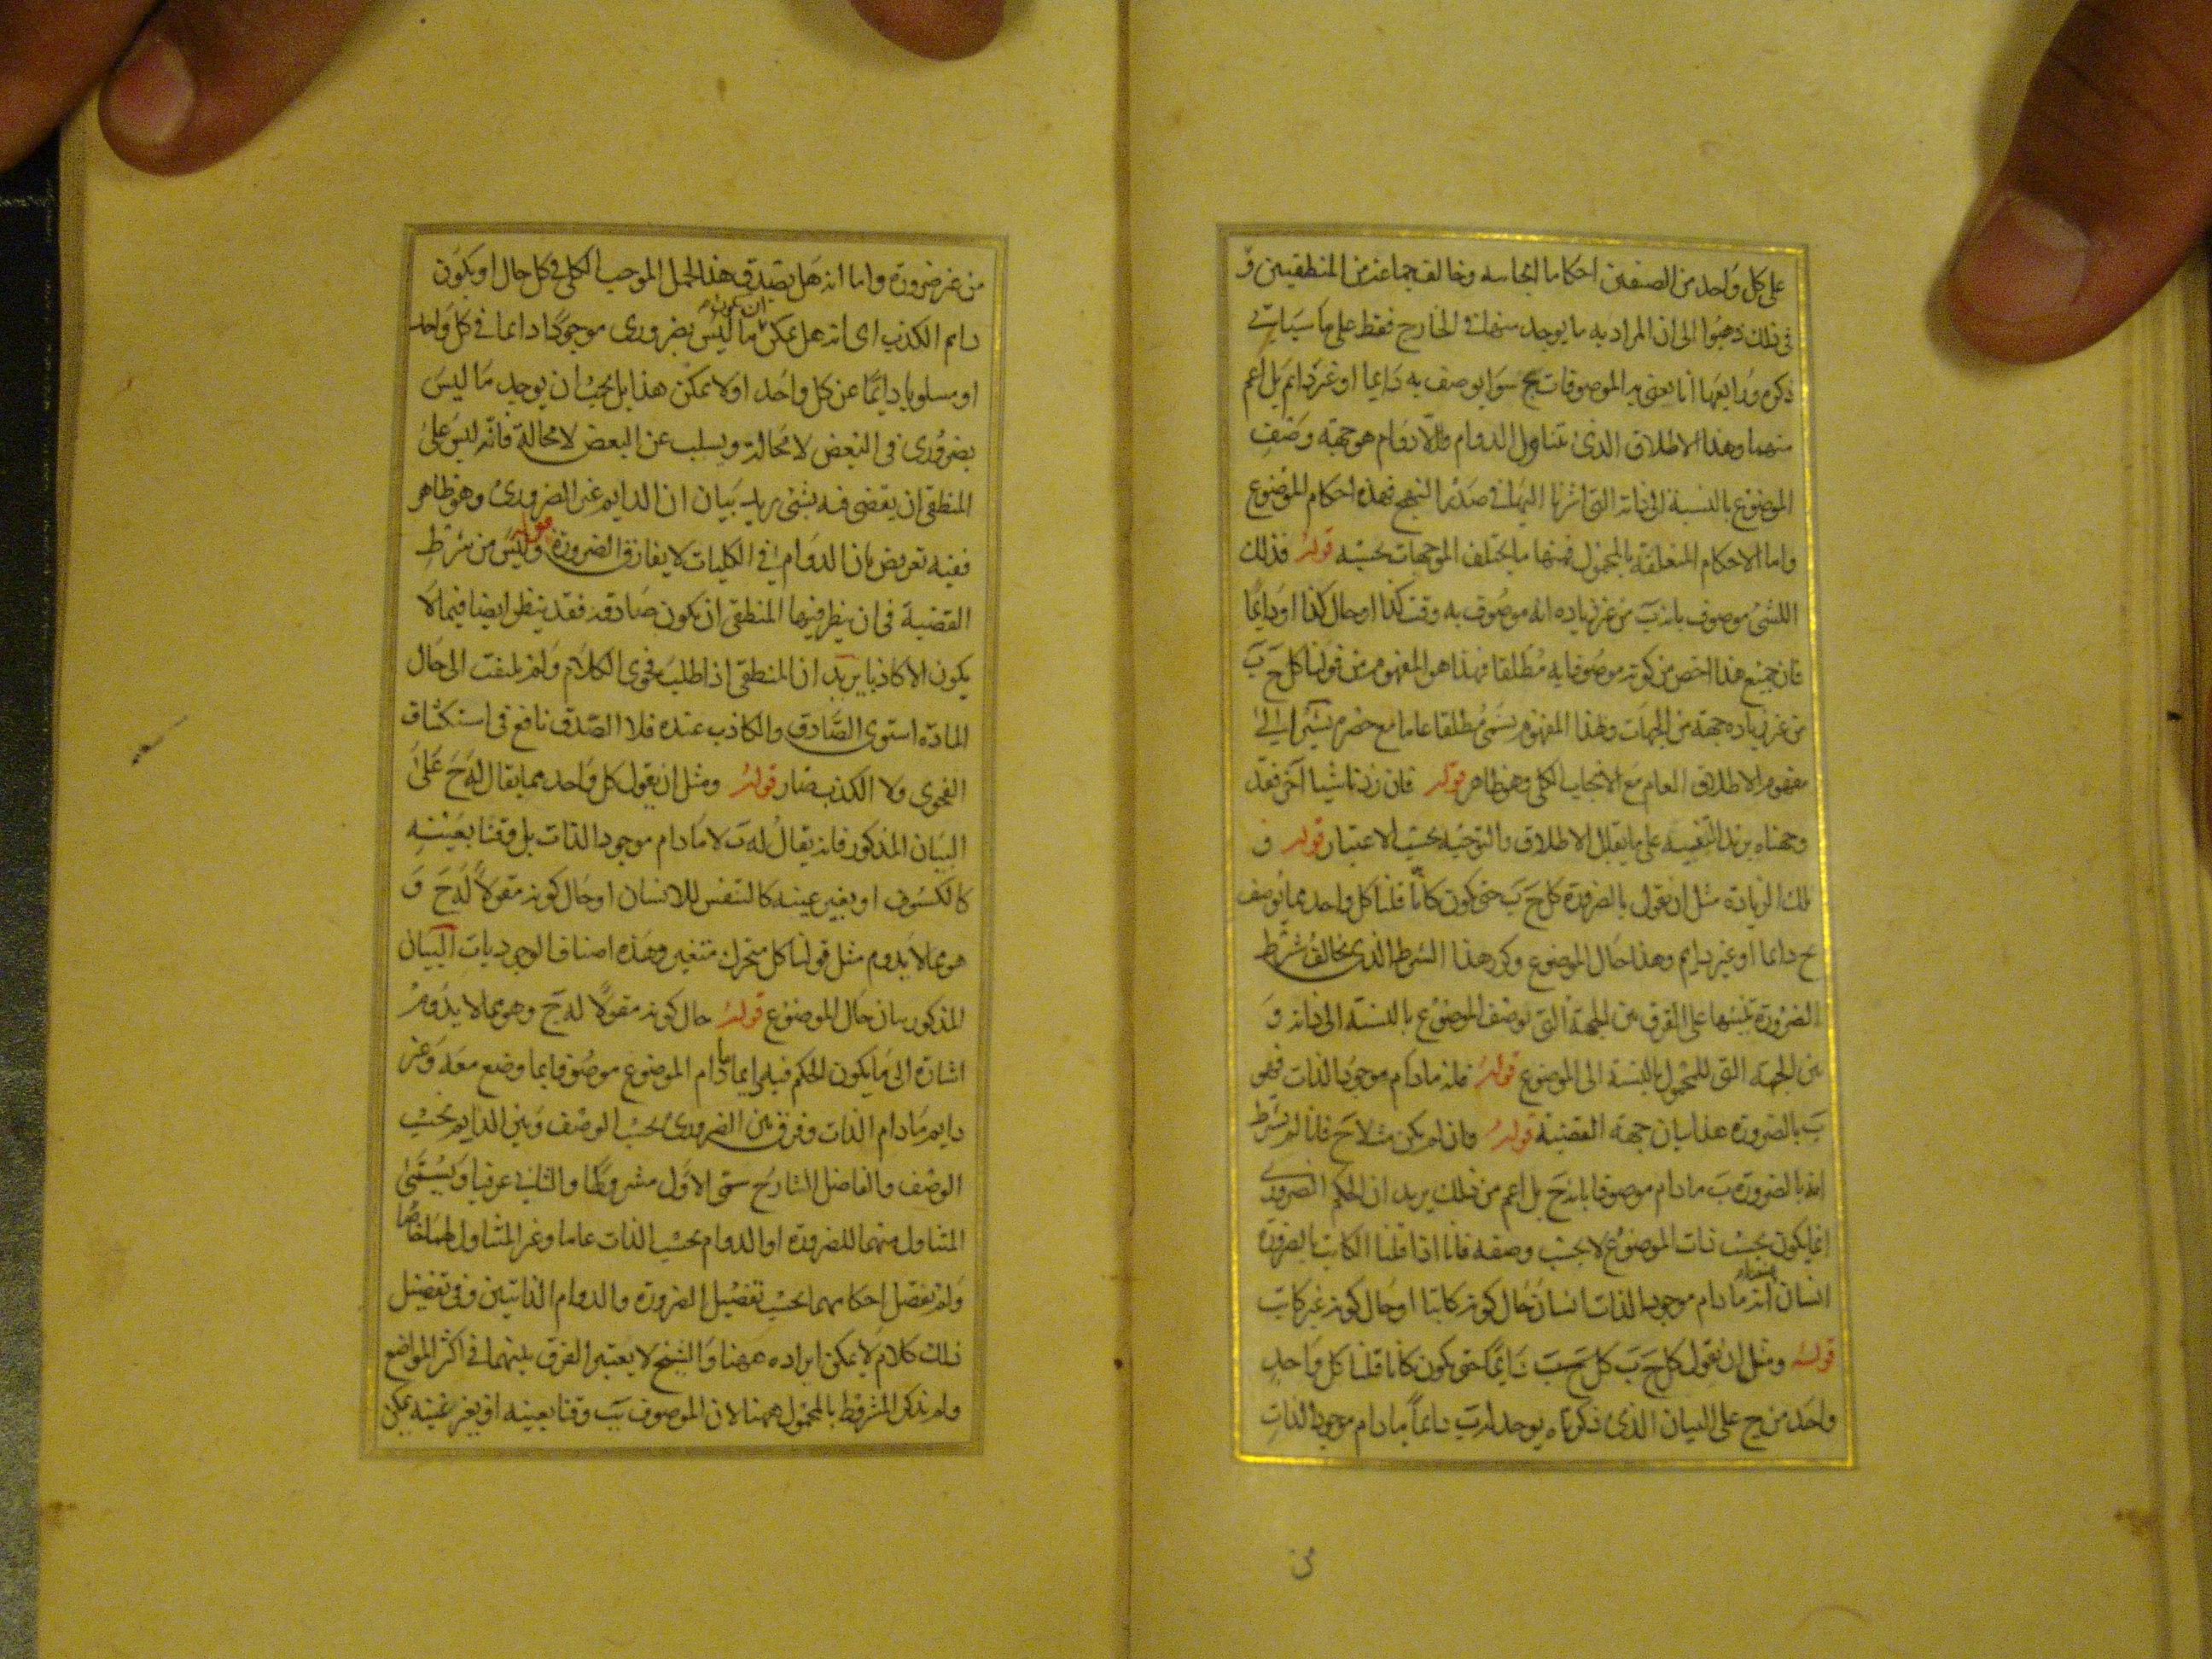 على كل واحد من الصنفين احكاما بخاسه وخالف جماعة من المنطقيين و
فى ذلك ذهبوا الى ان المراد به ما يوجد منهما فى الخارج فقط على ما سيأتى
ذكره ورابعها انا نعنى به الموصوفات بج سوا يوصف به دايما او غير دايم بل اعم
منهما وهذا الاطلاق الذى يتناول الدوام واللادوام هو جهة وصف
الموضوع بالنسبة الى ذاته التى اشرنا اليها فى صدر النهج فهذه احكام الموضوع
واما الاحكام المتعلقة بالمحمول فمنها ما يختلف الموجهات بحسبه قوله فذلك
الشى موصوف بانه ب من غير زياده انه موصوف به وقت كذا او حال كذا او دايما
فان جميع هذا اخص من كونه موصوفا به مطلقا فهذا هو المفهوم من قولنا كل ج ب
من غير زياده جهة من الجهات وهذا المفهوم يسمى مطلقا عاما مع حصره يشير الى
مفهوم الاطلاق العام مع الايجاب الكلى وهو ظاهر قوله فان زدنا شيا آخر فقد
وجهناه يريد التنبيه على ما يقابل الاطلاق والتوجيه بحسب الاعتبار قوله و
تلك الزيادة مثل ان نقول بالضرورة كل ج ب حتى يكون كانا قلنا كل واحد مما يوصف
بج دايما او غير دايم وهذا حال الموضوع وكرر هذا الشرط الذى يخالف شرط
الضرورة تنبيها على الفرق بين الجهة التى لوصف الموضوع بالنسبة الى ذاته و
بين الجهة التى للمحمول بالنسبة الى الموضوع قوله فانه مادام موجود الذات فهو
ب بالضرورة هذا بيان جهة القضية قوله وان لم يكن مثلا ج فانا لم نشترط
انه بالضرورة ب مادام موصوفا بانه ج بل اعم من ذلك يريد ان الحكم الضرورى
انما يكون بحسب ذات الموضوع لا بحسب وصفه فانا اذا قلنا الكاتب بالضرورة
انسان انه مادام موجود الذات انسان حال كونه كاتبا او حال كونه غير كاتب
قوله ومثل ان نقول كل ج ب كل ج ب دايما حتى يكون كانا قلنا كل واحد
واحد من ج على البيان الذى ذكرناه يوجد له ب دايما مادام موجود الذات
من غير ضرورة واما انه هل يصدق هذا الحمل الموجب الكلى فى كل حال او يكون
دايم الكذب اى انه هل يمكن ان يكون ما ليس بضرورى موجودا دايما فى كل واحد
او مسلوبا دايما عن كل واحد او لا يمكن هذا بل يجب ان يوجد ما ليس
بضرورى فى البعض لا محالة ويسلب عن البعض لا محالة فانه ليس على
المنطقى ان يقضى فيه بشى يريد بيان ان الدايم غير الضرورى وهو ظاهر
ففيه تعريض بان الدوام فى الكليات لا يفارق الضرورة قوله وليس من شرط
القضية فى ان ينظر فيها المنطقى ان يكون صادقة فقد ينظر ايضا فيما لا
يكون الا كاذبا يريد ان المنطقى اذا طلب فحوى الكلام ولم يلتفت الى حال
المادة استوى الصادق والكاذب عنده فلا الصدق نافع فى استكشاف
الفحوى ولا الكذب ضار قوله ومثل ان يقول كل واحد مما يقال له ج على
البيان المذكور فانه يقال له ب لا مادام موجود الذات بل وقتا بعينه
كالكسوف او بغير عينه كالتنفس للانسان او حال كونه مقولا له ج و
هو مما لا يدوم مثل قولنا كل متحرك متغير وهذه اصناف الوجوديات البيان
المذكور بيان حال الموضوع قوله حال كونه مقولا له ج وهو مما لا يدوم
اشارة الى ما يكون الحكم فيه دايما ما دام الموضوع موصوفا بما وضع معه وغير
دايم مادام الذات وفرق بين الضرورى بحسب الوصف وبين الدايم بحسب
الوصف والفاضل الشارح سمى الاول مشروطا والثانى عرفيا ويسمى
المتناول منهما للضرورة او الدوام بحسب الذات عاما وغير المتناول لهما خاصا
ولم نفصل احكامهما بحسب تفصيل الضرورة والدوام الذاتيين وفى تفصيل
ذلك كلام لا يمكن ايراده ههنا والشيخ لا يعتبر الفرق بينهما فى اكثر المواضع
ولم يذكر المشروط بالمحمول ههنا لان الموصوف بب وقتا بعينه او بغير عينه يمكن